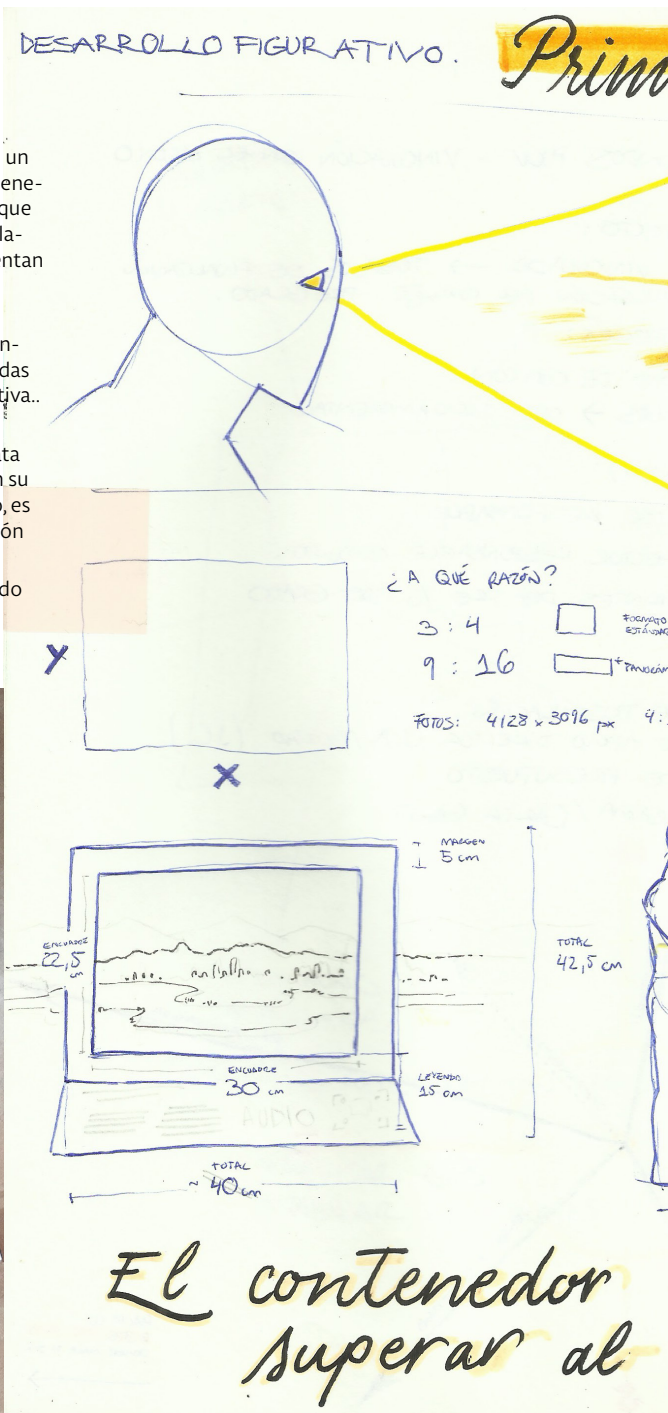 DESARROLLO FIGURATIVO.
Prim
un
ene-
que
la-
entan
n-
das
tiva..
ata
n su
o, es
ón
do
¿A QUÉ RAZÓN?
3 : 4
FORMATO
ESTÁNDAR
9 : 16
FOTOS: 4128 x 3096 px 4:
Y
X
MARGEN
5 cm
ENCUADRE
22,5
cm
TOTAL
42,5 cm
ENCUADRE
30 cm
LEYENDA
15 cm
AUDIO
TOTAL
~ 40 cm
El contenedor
superar al